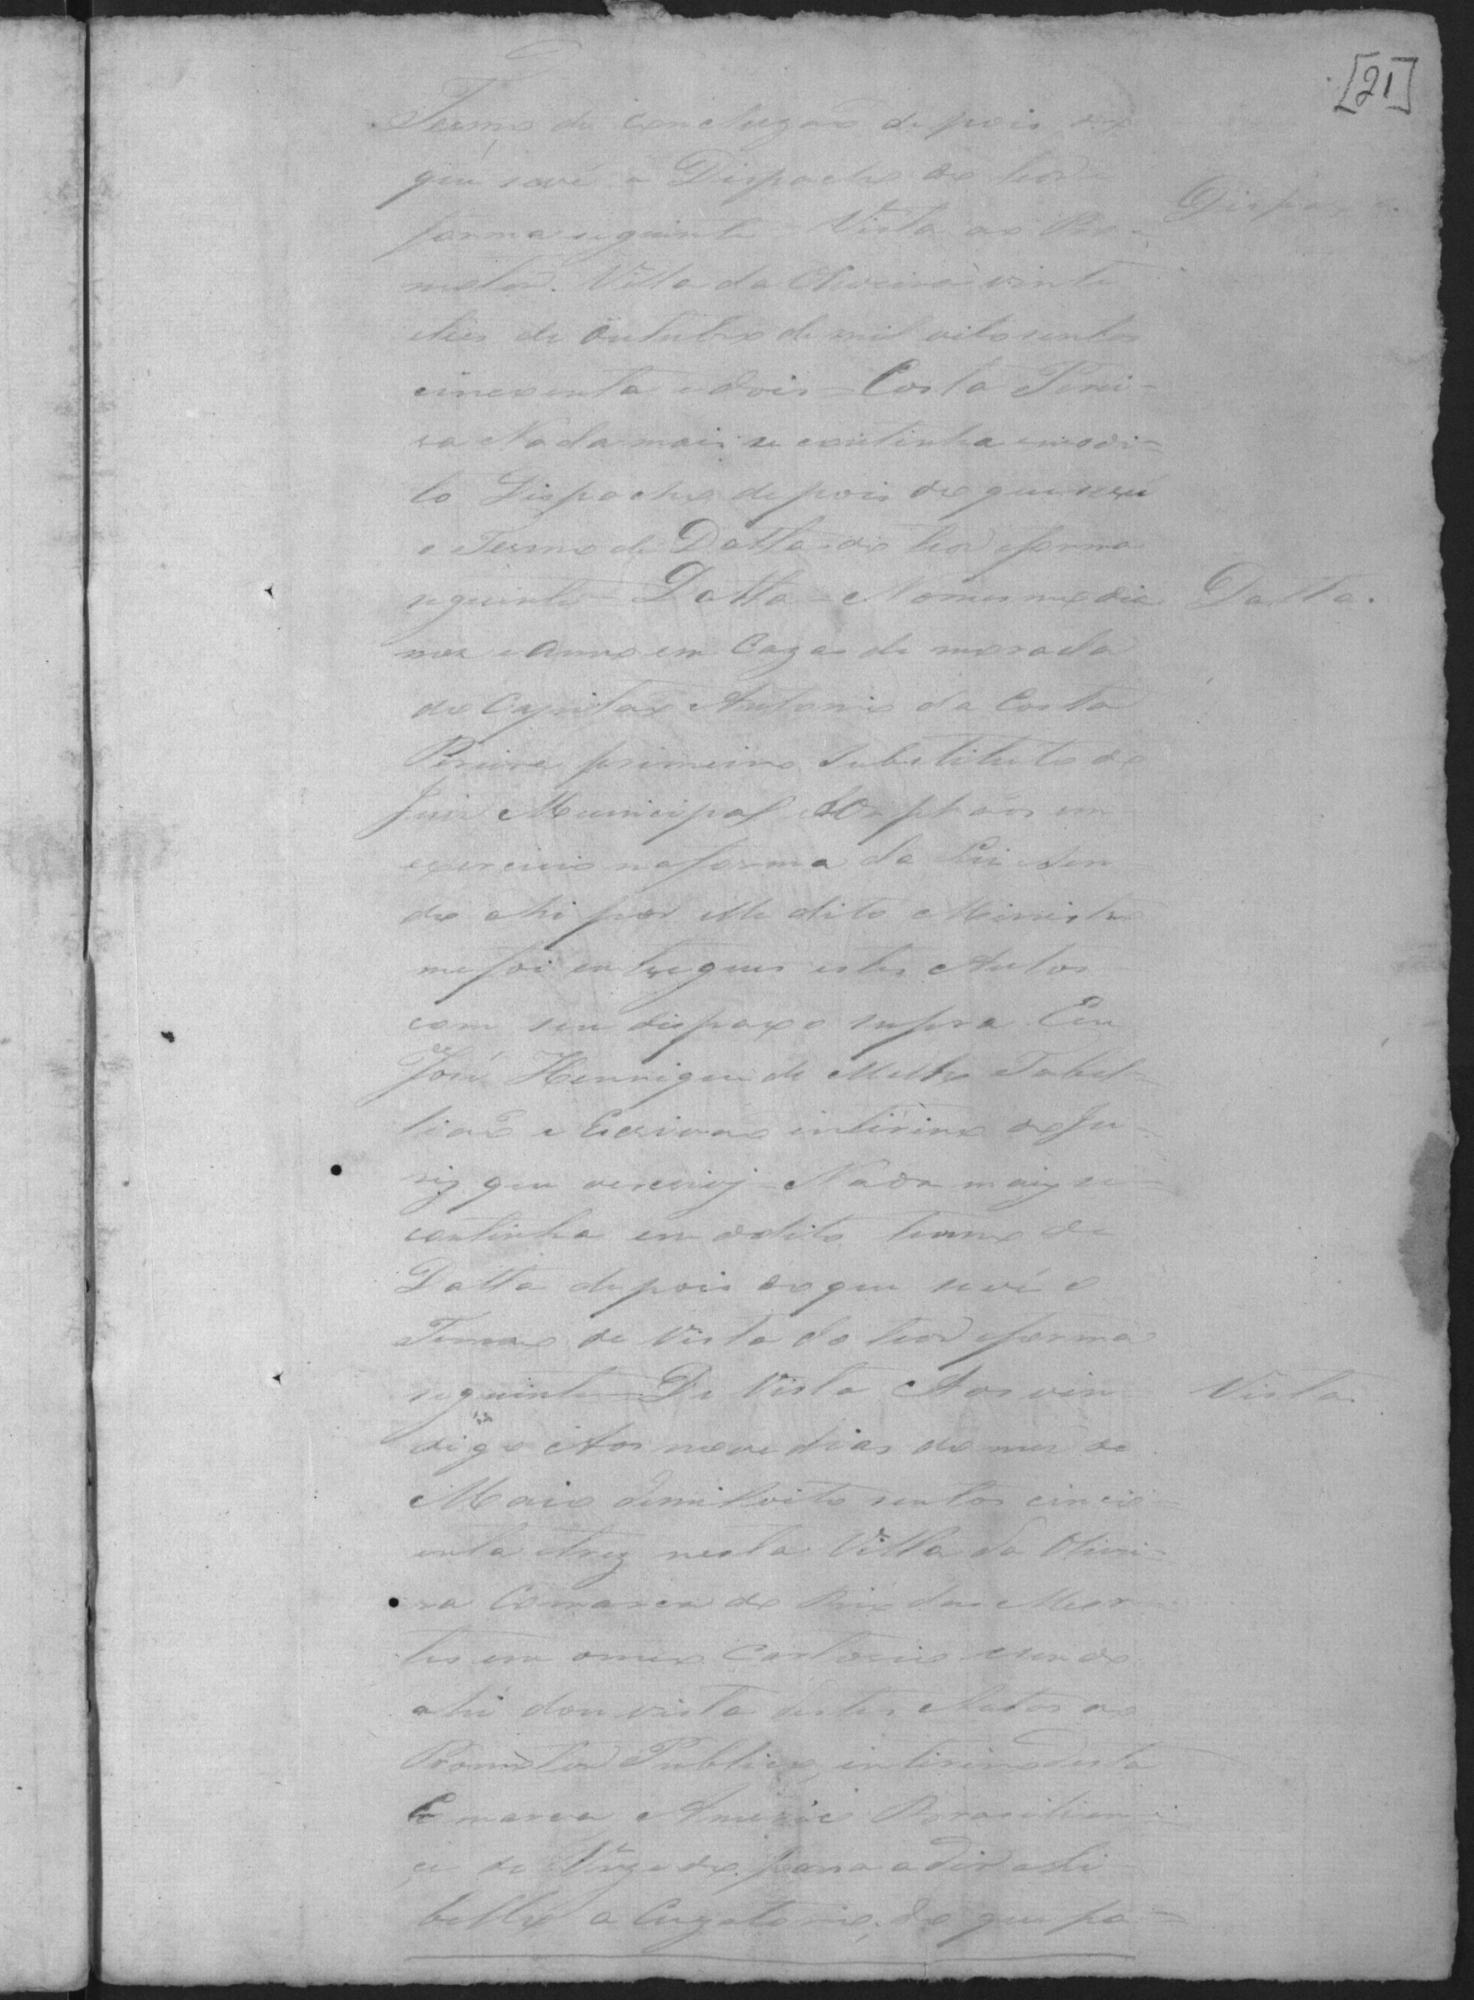 [21]
Termo de concluzaõ depois do
que se vê o Dispacho do teor e
Dispaxo.
forma seguinte = Vista ao Pro-
motor. Villa da Oliveira vinte
de Outubro de mil oito sentos
cincoenta e dois = Costa Perei-
ra Nada mais se continha em o di-
to Dispacho depois do que se vê
o Termo de Datta do teor e forma
seguinte = Datta = No mesmo dia
Datta.
mez e Anno em Cazas de morada
do Capitaõ Antonio da Costa
Pereira primeiro Substituto do
Juiz Municipal e Orphaõs em
exercicio na forma da Lei e sen
do ahi por elle dito Ministro
me foi entregues estes Autos
com seu dispaxo supra Eu
José Henrique de Mello Tabel-
liaõ e Escrivaõ intirino do Ju-
riz que escrivy = Nada mais se
continha em o dito termo de
Datta depois do que se vê o
Termo de Vista do teor e forma
seguinte = De Vista Aos vin
Vista
digo Aos nove dias do mez de
Maio de mil oito sentos cinco-
enta e trez nesta Villa da Olivei-
ra Comarca do Rio das Mor
tes em o meu Cartorio e sendo
ahi dou vista destes Autos ao
Promotor Publico intirino desta
Comarca Americo Brasilien
de para adir o Li
bello a Cuzatorio, do que pa-